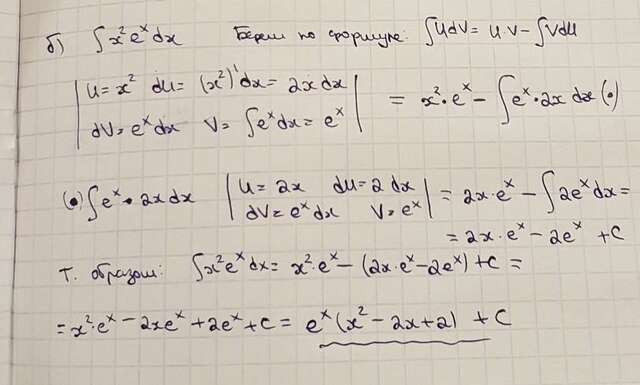 б) ∫x²eˣdx Берем по формуле: ∫UdV = U·V - ∫VdU
| U = x² dU = (x²)'dx = 2x dx
dV = eˣdx V = ∫eˣdx = eˣ | = x²·eˣ - ∫eˣ·2x dx (•)
(•) ∫eˣ·2x dx | U = 2x dU = 2 dx
dV = eˣdx V = eˣ | = 2x·eˣ - ∫2eˣdx =
= 2x·eˣ - 2eˣ + C
Т. образом: ∫x²eˣdx = x²·eˣ - (2x·eˣ - 2eˣ) + C =
= x²·eˣ - 2xeˣ + 2eˣ + C = eˣ(x² - 2x + 2) + C